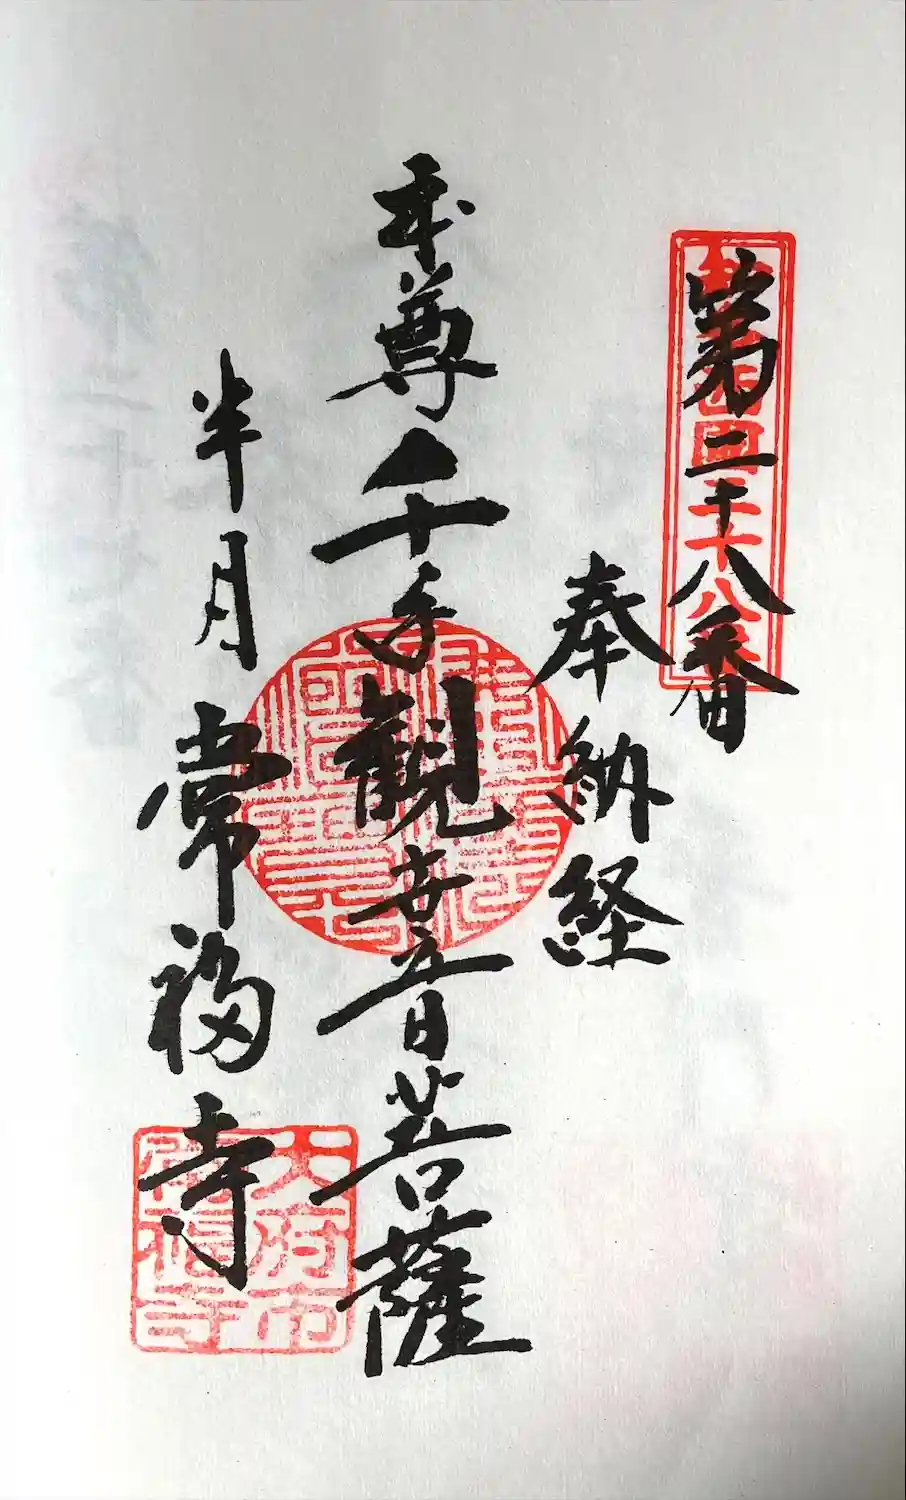 第二十八番
奉納経
本尊千手観音菩薩
半月
常福寺
太府市
常福寺